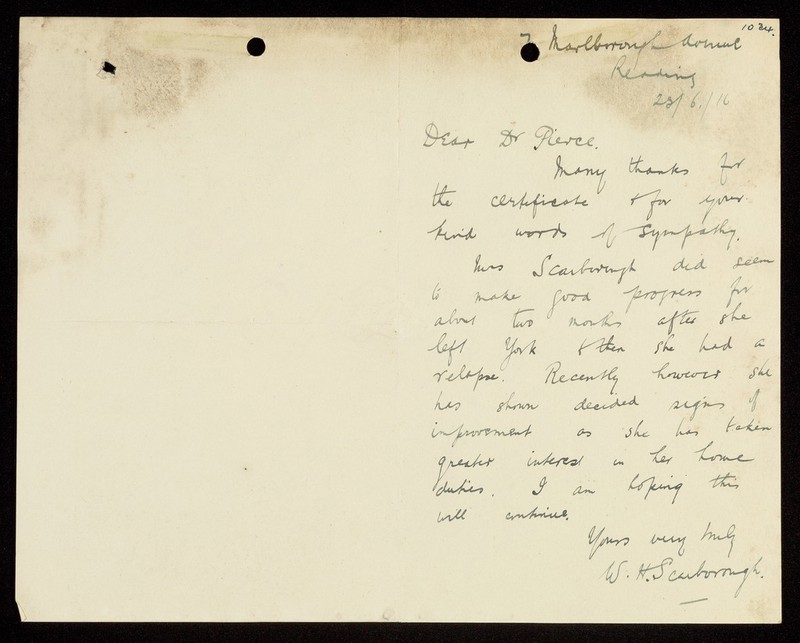 10 24.
7 Marlborough Avenue
Reading
23/6/16
Dear Dr Pierce.
Many thanks for
the certificate & for your
kind words of sympathy.
Mrs Scarborough did seem
to make good progress for
about two months after she
left York & then she had a
relapse. Recently however she
has shown decided signs of
improvement as she has taken
greater interest in her home
duties. I am hoping this
will continue.
Yours very truly
W. H. Scarborough.